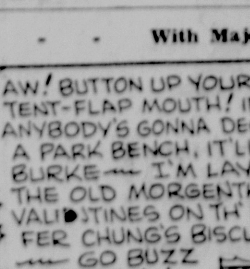 - - With Maj
AW! BUTTON UP YOUR
TENT-FLAP MOUTH! I
ANYBODY'S GONNA DE
A PARK BENCH, IT'L
BURKE — I'M LAY
THE OLD MORGENT
ON TH'
FER CHUNG'S BISCU
— GO BUZZ